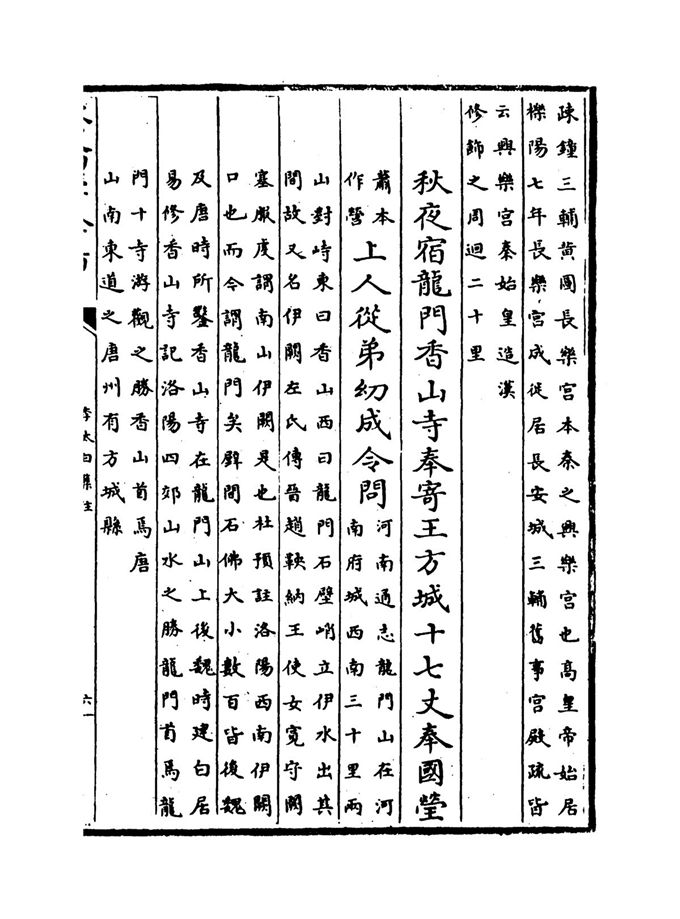 疎鐘三輔黄圖長樂宫本秦之興樂宫也髙皇帝始居
櫟陽七年長樂宫成徙居長安城三輔舊事宫殿疏皆
云興樂宫秦始皇造漢
修飾之周迴二十里
秋夜宿龍門香山寺奉寄王方城十七丈奉國瑩
蕭本
作營
上人從弟幼成令問
河南通志龍門山在河
南府城西南三十里兩
山對峙東曰香山西曰龍門石壁峭立伊水出其
間故又名伊闕左氏傳晉趙鞅納王使女寛守闕
塞服䖍謂南山伊闕是也杜預註洛陽西南伊闕
口也而今謂龍門矣壁間石佛大小數百皆後魏
及唐時所鑿香山寺在龍門山上後魏時建白居
易修香山寺記洛陽四郊山水之勝龍門首焉龍
門十寺游觀之勝香山首焉唐
山南東道之唐州有方城縣
李太白集注
六一